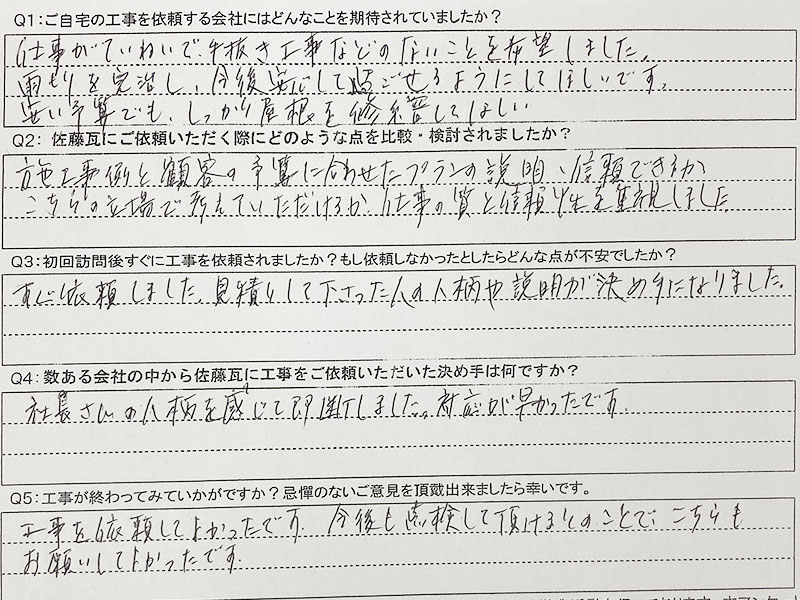 Q1:ご自宅の工事を依頼する会社にはどんなことを期待されていましたか？
仕事がていねいで手抜き工事などのないことを希望しました。
雨もりを完治し、今後安心して過ごせるようにしてほしいです。
安い予算でも、しっかり屋根を修繕してほしい
Q2: 佐藤瓦にご依頼いただく際にどのような点を比較・検討されましたか？
施工事例と顧客の予算に合わせたプランの説明、信頼できるか
こちらの立場で考えていただけるか 仕事の質と信頼性を重視しました
Q3:初回訪問後すぐに工事を依頼されましたか？もし依頼しなかったとしたらどんな点が不安でしたか？
すぐ依頼しました。見積りして下さった人の人柄や説明が決め手になりました。
Q4:数ある会社の中から佐藤瓦に工事をご依頼いただいた決め手は何ですか？
社長さんの人柄を感じて即断しました。対応が早かったです。
Q5:工事が終わってみていかがですか？忌憚のないご意見を頂戴出来ましたら幸いです。
工事を依頼してよかったです 今後も点検して頂けるとのことで、こちらも
お願いしてよかったです。